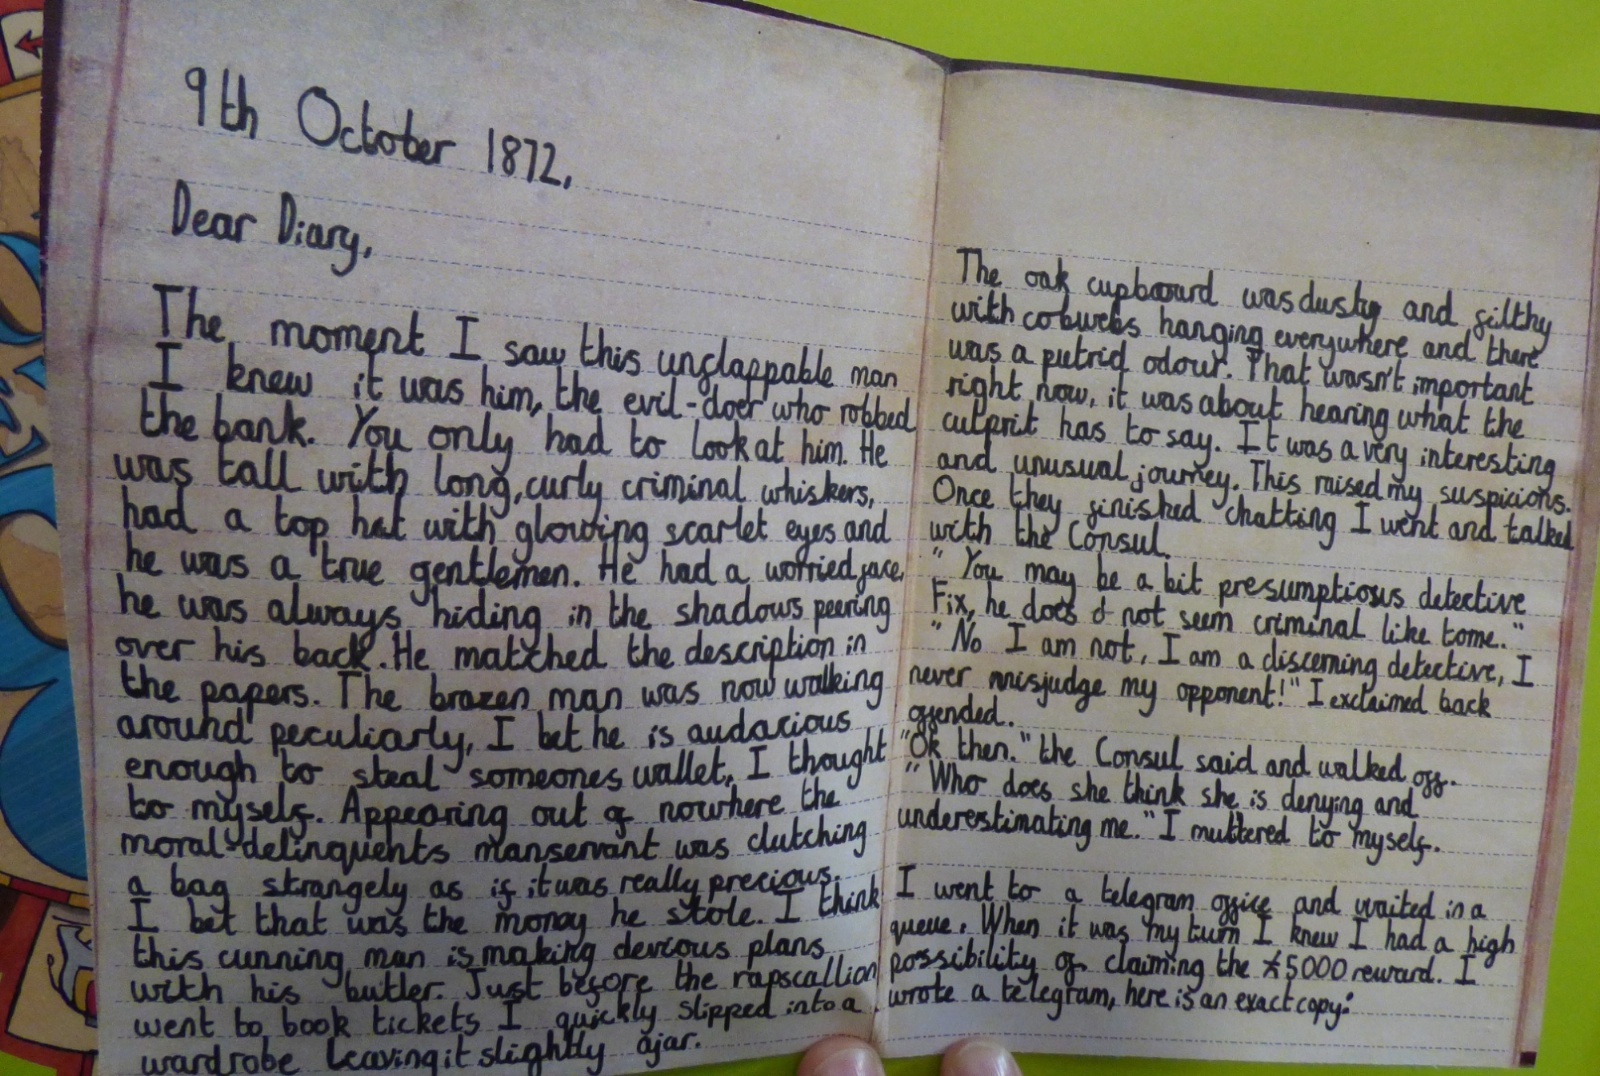 9th October 1872,
Dear Diary,
The moment I saw this unflappable man
I knew it was him, the evil-doer who robbed
the bank. You only had to look at him. He
was tall with long, curly criminal whiskers,
had a top hat with glowing scarlet eyes and
he was a true gentlemen. He had a worried face,
he was always hiding in the shadows peering
over his back. He matched the description in
the papers. The brazen man was now walking
around peculiarly, I bet he is audacious
enough to steal someones wallet, I thought
to myself. Appearing out of nowhere the
moral delinquents manservant was clutching
a bag strangely as if it was really precious.
I bet that was the money he stole. I think
this cunning man is making devious plans
with his butler. Just before the rapscallion
went to book tickets I quickly slipped into a
wardrobe leaving it slightly ajar.
The oak cupboard was dusty and filthy
with cobwebs hanging everywhere and there
was a putrid odour. That wasn't important
right now, it was about hearing what the
culprit has to say. It was a very interesting
and unusual journey. This raised my suspicions.
Once they finished chatting I went and talked
with the Consul.
"You may be a bit presumptiosus detective
Fix, he does not seem criminal like to me."
"No I am not, I am a discerning detective, I
never misjudge my opponent!" I exclaimed back
offended.
"Ok then." the Consul said and walked off.
"Who does she think she is denying and
underestimating me." I muttered to myself.
I went to a telegram office and waited in a
queue. When it was my turn I knew I had a high
possibility of claiming the £5000 reward. I
wrote a telegram, here is an exact copy: